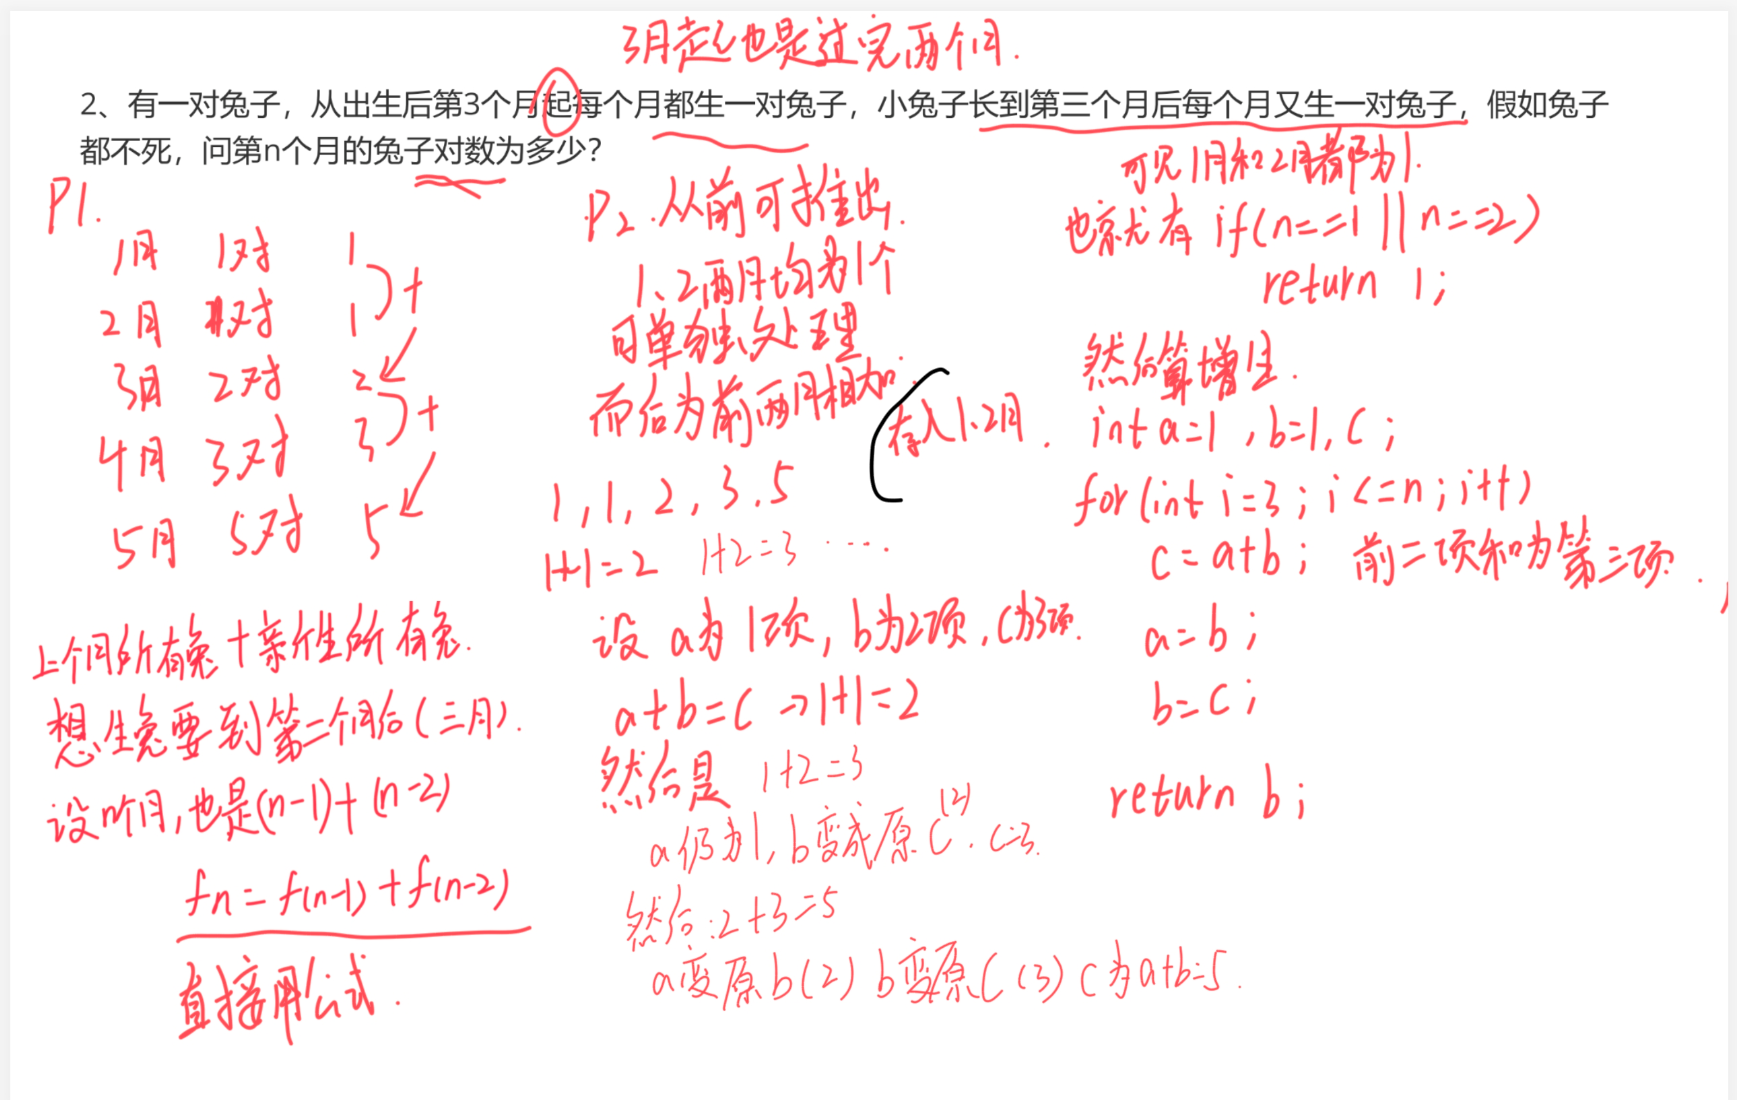 3月起也是过完两个月.
2、有一对兔子，从出生后第3个月起每个月都生一对兔子，小兔子长到第三个月后每个月又生一对兔子，假如兔子
都不死，问第n个月的兔子对数为多少？
P1.
1月 1对 1
+
2月 1对 1
3月 2对 2
+
4月 3对 3
5月 5对 5
上个月所有兔+新生所有兔.
想生兔要到第二个月后(三月).
设n个月,也是(n-1)+(n-2)
fn=f(n-1)+f(n-2)
直接用公式.
P2.从前可推出.
1、2两月均为1个
可单独处理.
而后为前两月相加.
1,1,2,3.5
1+1=2 1+2=3 ....
设a为1项,b为2项,c为3项.
a+b=c→1+1=2
然后是 1+2=3
a仍为1,b变成原c(2).c=3.
然后:2+3=5
a变原b(2) b变原c(3) c为a+b=5.
可见1月和2月都为1.
也就有 if(n==1||n==2)
return 1;
然后算增生.
存入1.2月. int a=1,b=1,c;
for(int i=3;i<=n;i++)
c=a+b; 前二项和为第三项.
a=b;
b=c;
return b;